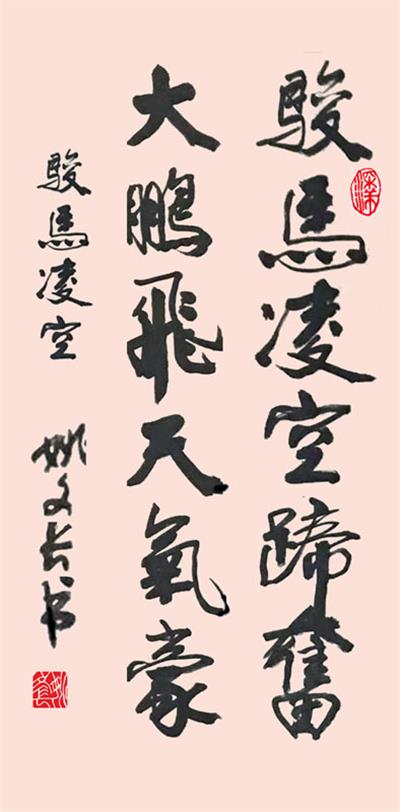 駿馬凌空蹄奮
大鵬飛天氣豪
駿馬凌空
姚文长书